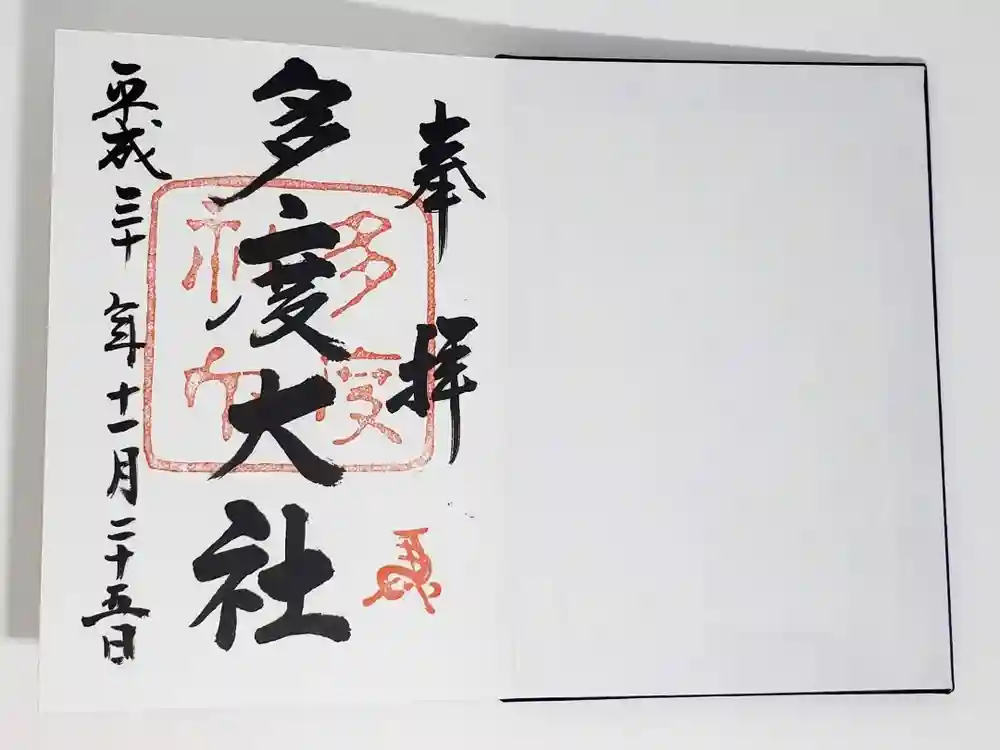 奉拝
多度大社
平成三十年十一月二十五日
多度
神印
馬